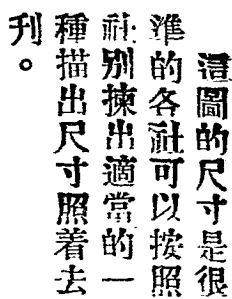 這圖的尺寸是很
準的各社可以按照
社别揀出適當的一
種描出尺寸照着去
刊。